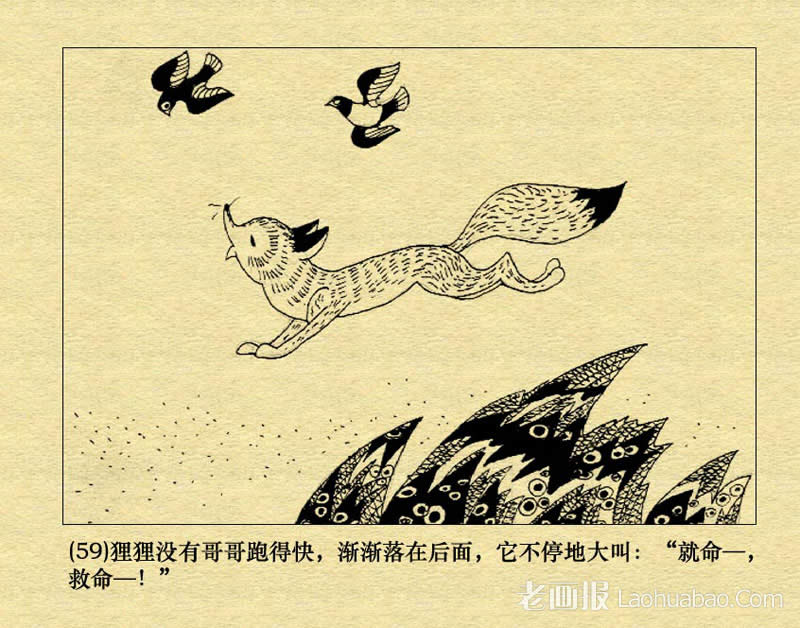 (59)狸狸没有哥哥跑得快，渐渐落在后面，它不停地大叫：“就命—，
救命—！”
老画报 Laohuabao.Com